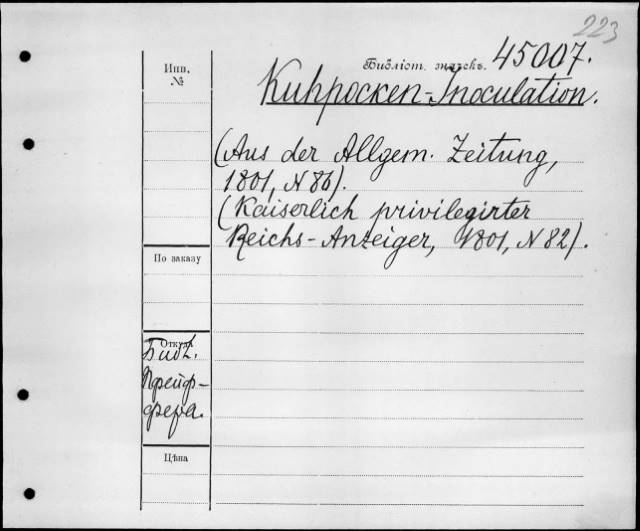 223
Инв.
№
Библіот. значекъ. 45007.
Kuhpocken-Inoculation.
(Aus der Allgem. Zeitung,
1801, N 86).
(Kaiserlich privilegirter
Reichs-Anzeiger, 1801, N 82).
По заказу
Откуда
Библ.
Пфейф-
фера.
Цѣна